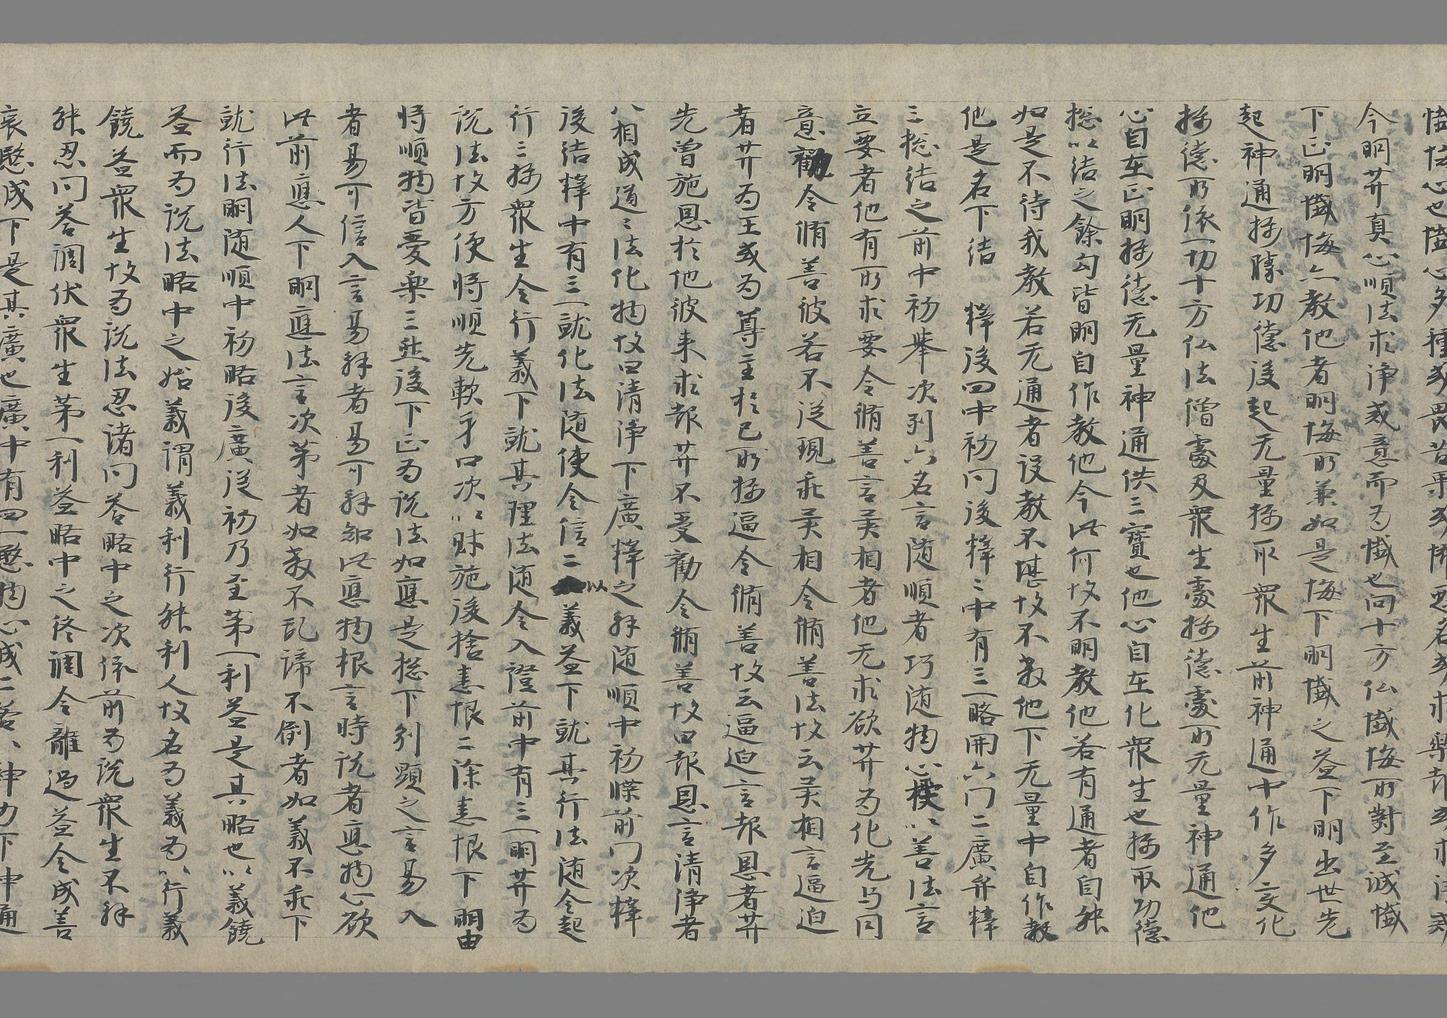 今明芥真心順法求淨戒意而为懺也向十方仏懺悔所對至誠懺
下正明懺悔六教他者明悔所兼如是悔下明懺之益下明出世先
起神通攝勝功德後起无量攝取眾生前神通中作多文化
攝德所依一切十方仏法僧處及眾生處攝德處所无量神通他
心自在正明攝德无量神通供三寶也他心自在化眾生也攝取功德
捴以結之餘句皆明自作教他今此何故不明教他若有通者自能
如是不待我教若无通者設教不堪故不教他下无量中自作教
他是名下結 釋後四中初问後釋〻中有三一略開六门二廣弁釋
三捴結之前中初舉次列六名言随順者巧随物心授以善法言
立要者他有所求要令脩善言異相者他无求欲芥为化先与同
意勸令脩善彼若不從現乖異相令脩善法故云異相言逼迫
者芥为王或为尊主於己所攝逼令脩善故云逼迫言報恩者芥
先曾施恩於他彼来求報芥不受勸令脩善故曰報恩言清淨者
八相成道〻法化物故曰清淨下廣釋之释随順中初牒前门次釋
後結釋中有三一就化法随便令信二以義益下就其行法随令起
行三攝眾生令行義下就其理法随令入證前中有三一明芥为
说法故方便将順先軟乎口次以財施後捨恚恨二除恚恨下明由
将順物皆愛樂三然後下正为说法如應是捴下列顕之言易入
者易可信入言易释者易可释知此應物根言時说者應物心欲
此前應人下明應法言次第者如教不乱諦不倒者如義不乖下
就行法明随順中初略後廣從初乃至第一利益是其略也以義饒
益而为说法略中之始義謂義利行能利人故名为義为以行義
饒益眾生故为说法忍諸问荅略中之次依前为说眾生不释
能忍问荅調伏眾生第一利益略中之終調令離過益令成善
哀愍成下是其廣也廣中有四一愍物心成二荅〻神力下中通